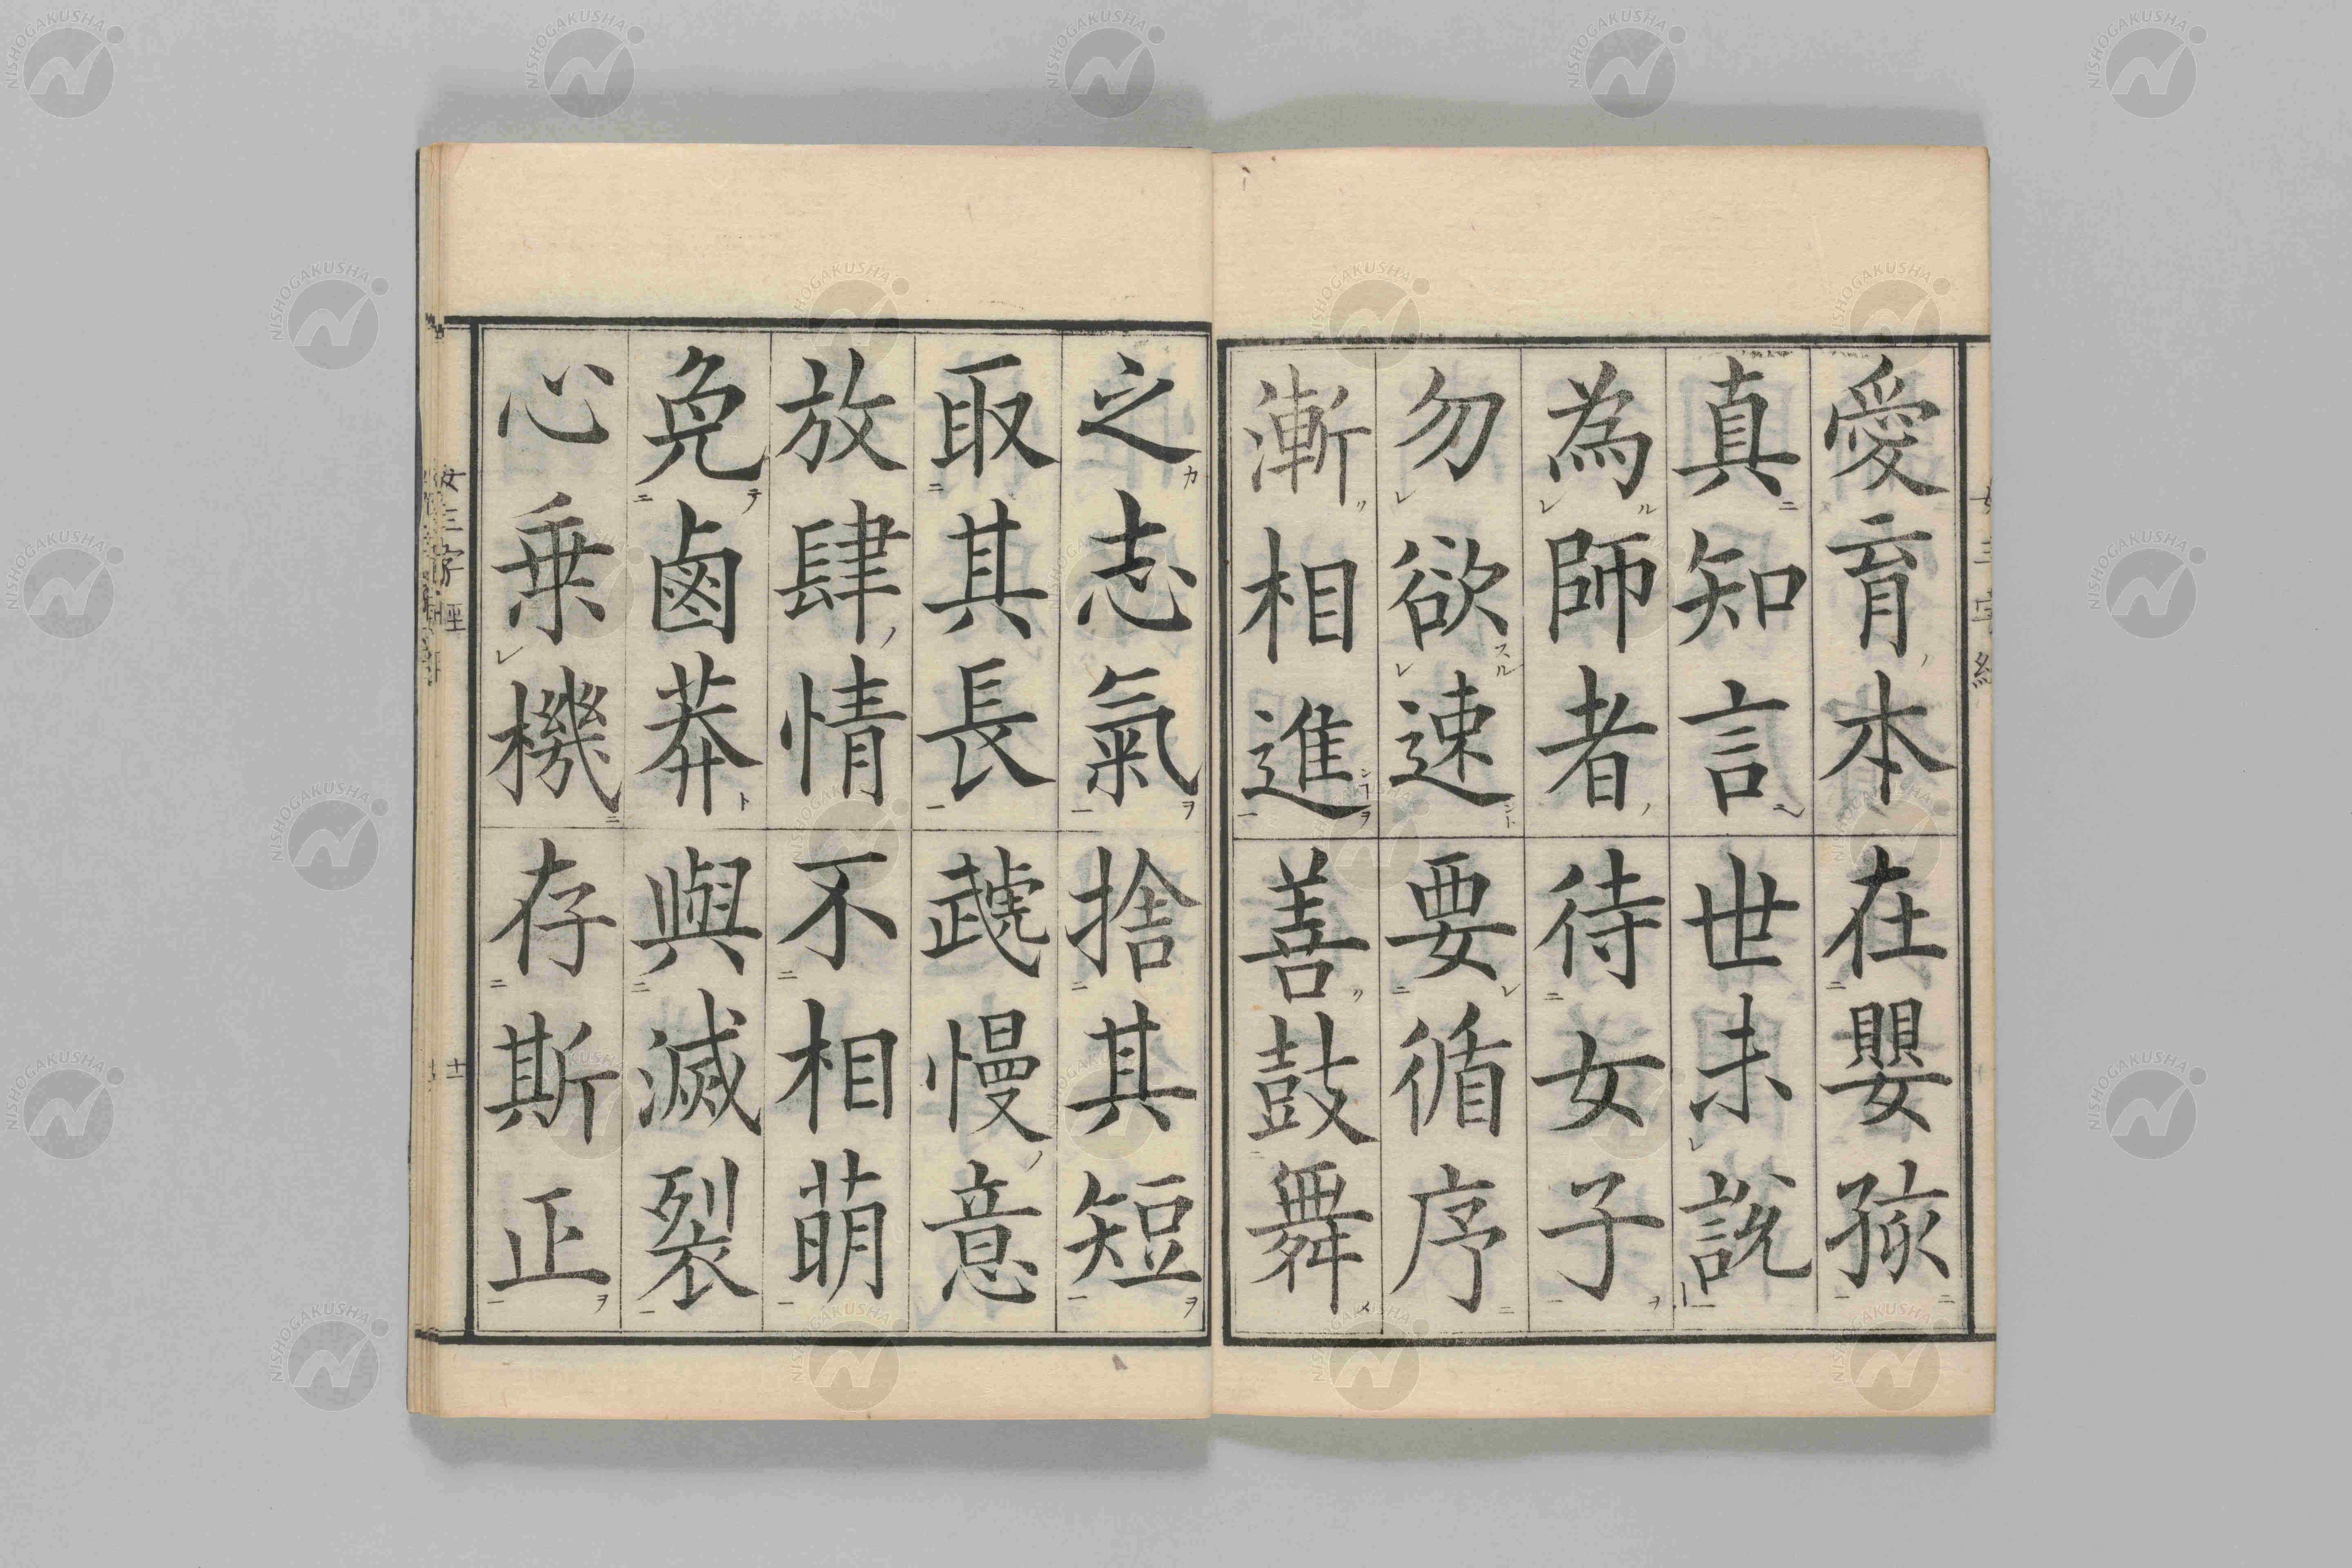 愛育本在嬰孩
真知言世未説
為師者待女子
勿欲速要循序
漸相進善鼓舞
之志氣捨其短
取其長䟽慢意
放肆情不相萌
免鹵莽與滅裂
心乗機存斯正
女三字經
十一
NISHOGAKUSHA